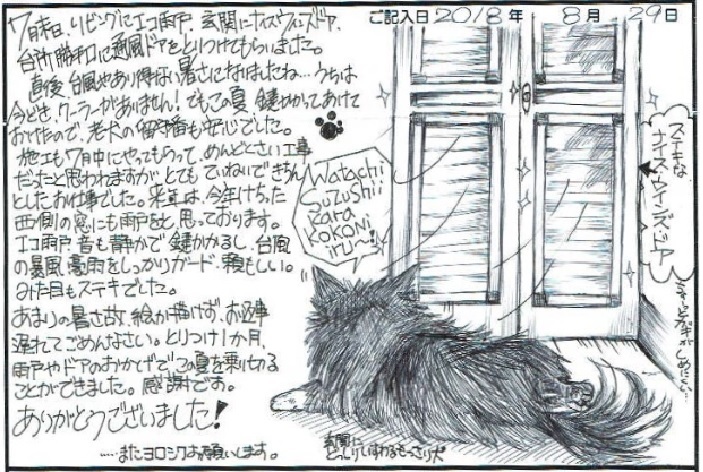 ご記入日 2018年 8月 29日
7月末日、リビングにエコ雨戸、玄関にナイスウィンズドア、
台所勝手口に通風ドアをとりつけてもらいました。
直後、台風やあり得ない暑さになりましたね…うちは
今どき、クーラーがありません！でもこの夏、鍵かかってあけて
おけたので、老犬の留守番も安心でした。
施工も7月中にやってもらって、めんどくさい工事
だったと思われますが、とてもていねいできちん
としたお仕事でした。来年は、今年けちった
西側の窓にも雨戸をと、思っております。
エコ雨戸、音も静かで鍵かかるし、台風
の暴風、豪雨をしっかりガード、頼もしい。
みた目もステキでした。
あまりの暑さ故、絵が描けず、お返事
遅れてごめんなさい。とりつけ1か月、
雨戸やドアのおかげでこの夏を乗り切る
ことができました。感謝です。
ありがとうございました！
……またヨロシクお願いします。
Watachi
Suzushii
Kara
KOKONi
iru〜!
ステキな
ナイス・ウインズ・ドア
ちょっとカギがしめにくい…
玄関に
どっしりしすわるもっさり犬